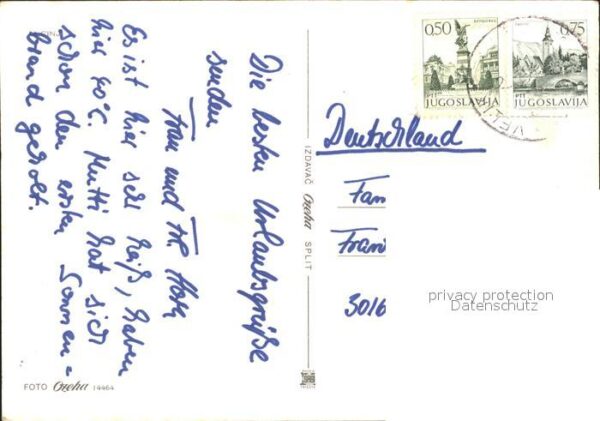 Die besten Urlaubsgrüße
senden
Frau und Hr.
Es ist hier sehr heiß, haben
hier 40°C. Mutti hat sich
schon den ersten Sonnen-
brand geholt.
FOTO Ozeha 14464
IZDAVAČ Ozeha SPLIT
0,50
JUGOSLAVIJA
0,75
JUGOSLAVIJA
Deutschland
Fam
3016
privacy protection
Datenschutz